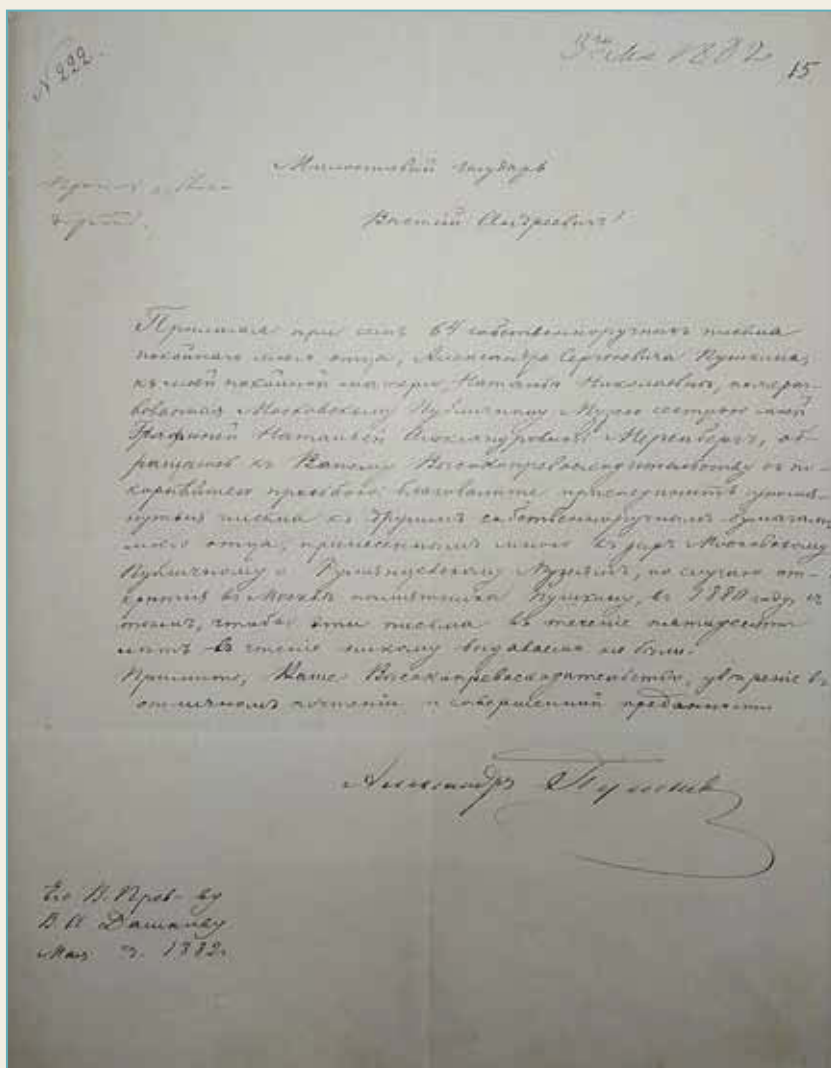 N 222.
1882
15
Милостивый государь
Василий Андреевич!
Препровождая при семъ 64 собственноручныхъ письма
покойнаго моего отца, Александра Сергѣевича Пушкина,
къ моей покойной матери, Натальѣ Николаевнѣ, пожерт-
вованныя Московскому Публичному Музею сестрою моей
Графиней Натальей Александровной Меренбергъ, об-
ращаюсь къ Вашему Высокопревосходительству съ по-
корнѣйшею просьбою благоволите присоединить упомя-
нутыя письма къ другимъ собственноручнымъ бумагамъ
моего отца, принесеннымъ мною въ даръ Московскому
Публичному и Румянцевскому Музеямъ, по случаю от-
крытія въ Москвѣ памятника Пушкину, въ 1880 году, съ
тѣмъ, чтобы эти письма въ теченіе пятидесяти
лѣтъ въ чтеніе никому выдаваемы не были.
Примите, Ваше Высокопревосходительство, увѣреніе въ
отличномъ почтеніи и совершенной преданности
Александръ Пушкинъ
Его В. Прев-ву
В. А. Дашкову
Мая 3. 1882г.